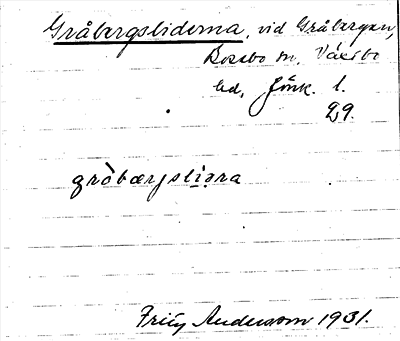 Gråbergsliderna, vid Gråbergen,
Bossbo m. Växbo
hd, Jönk. l.
29.
gròbærjsliɑra
Fritz Anderson 1931.